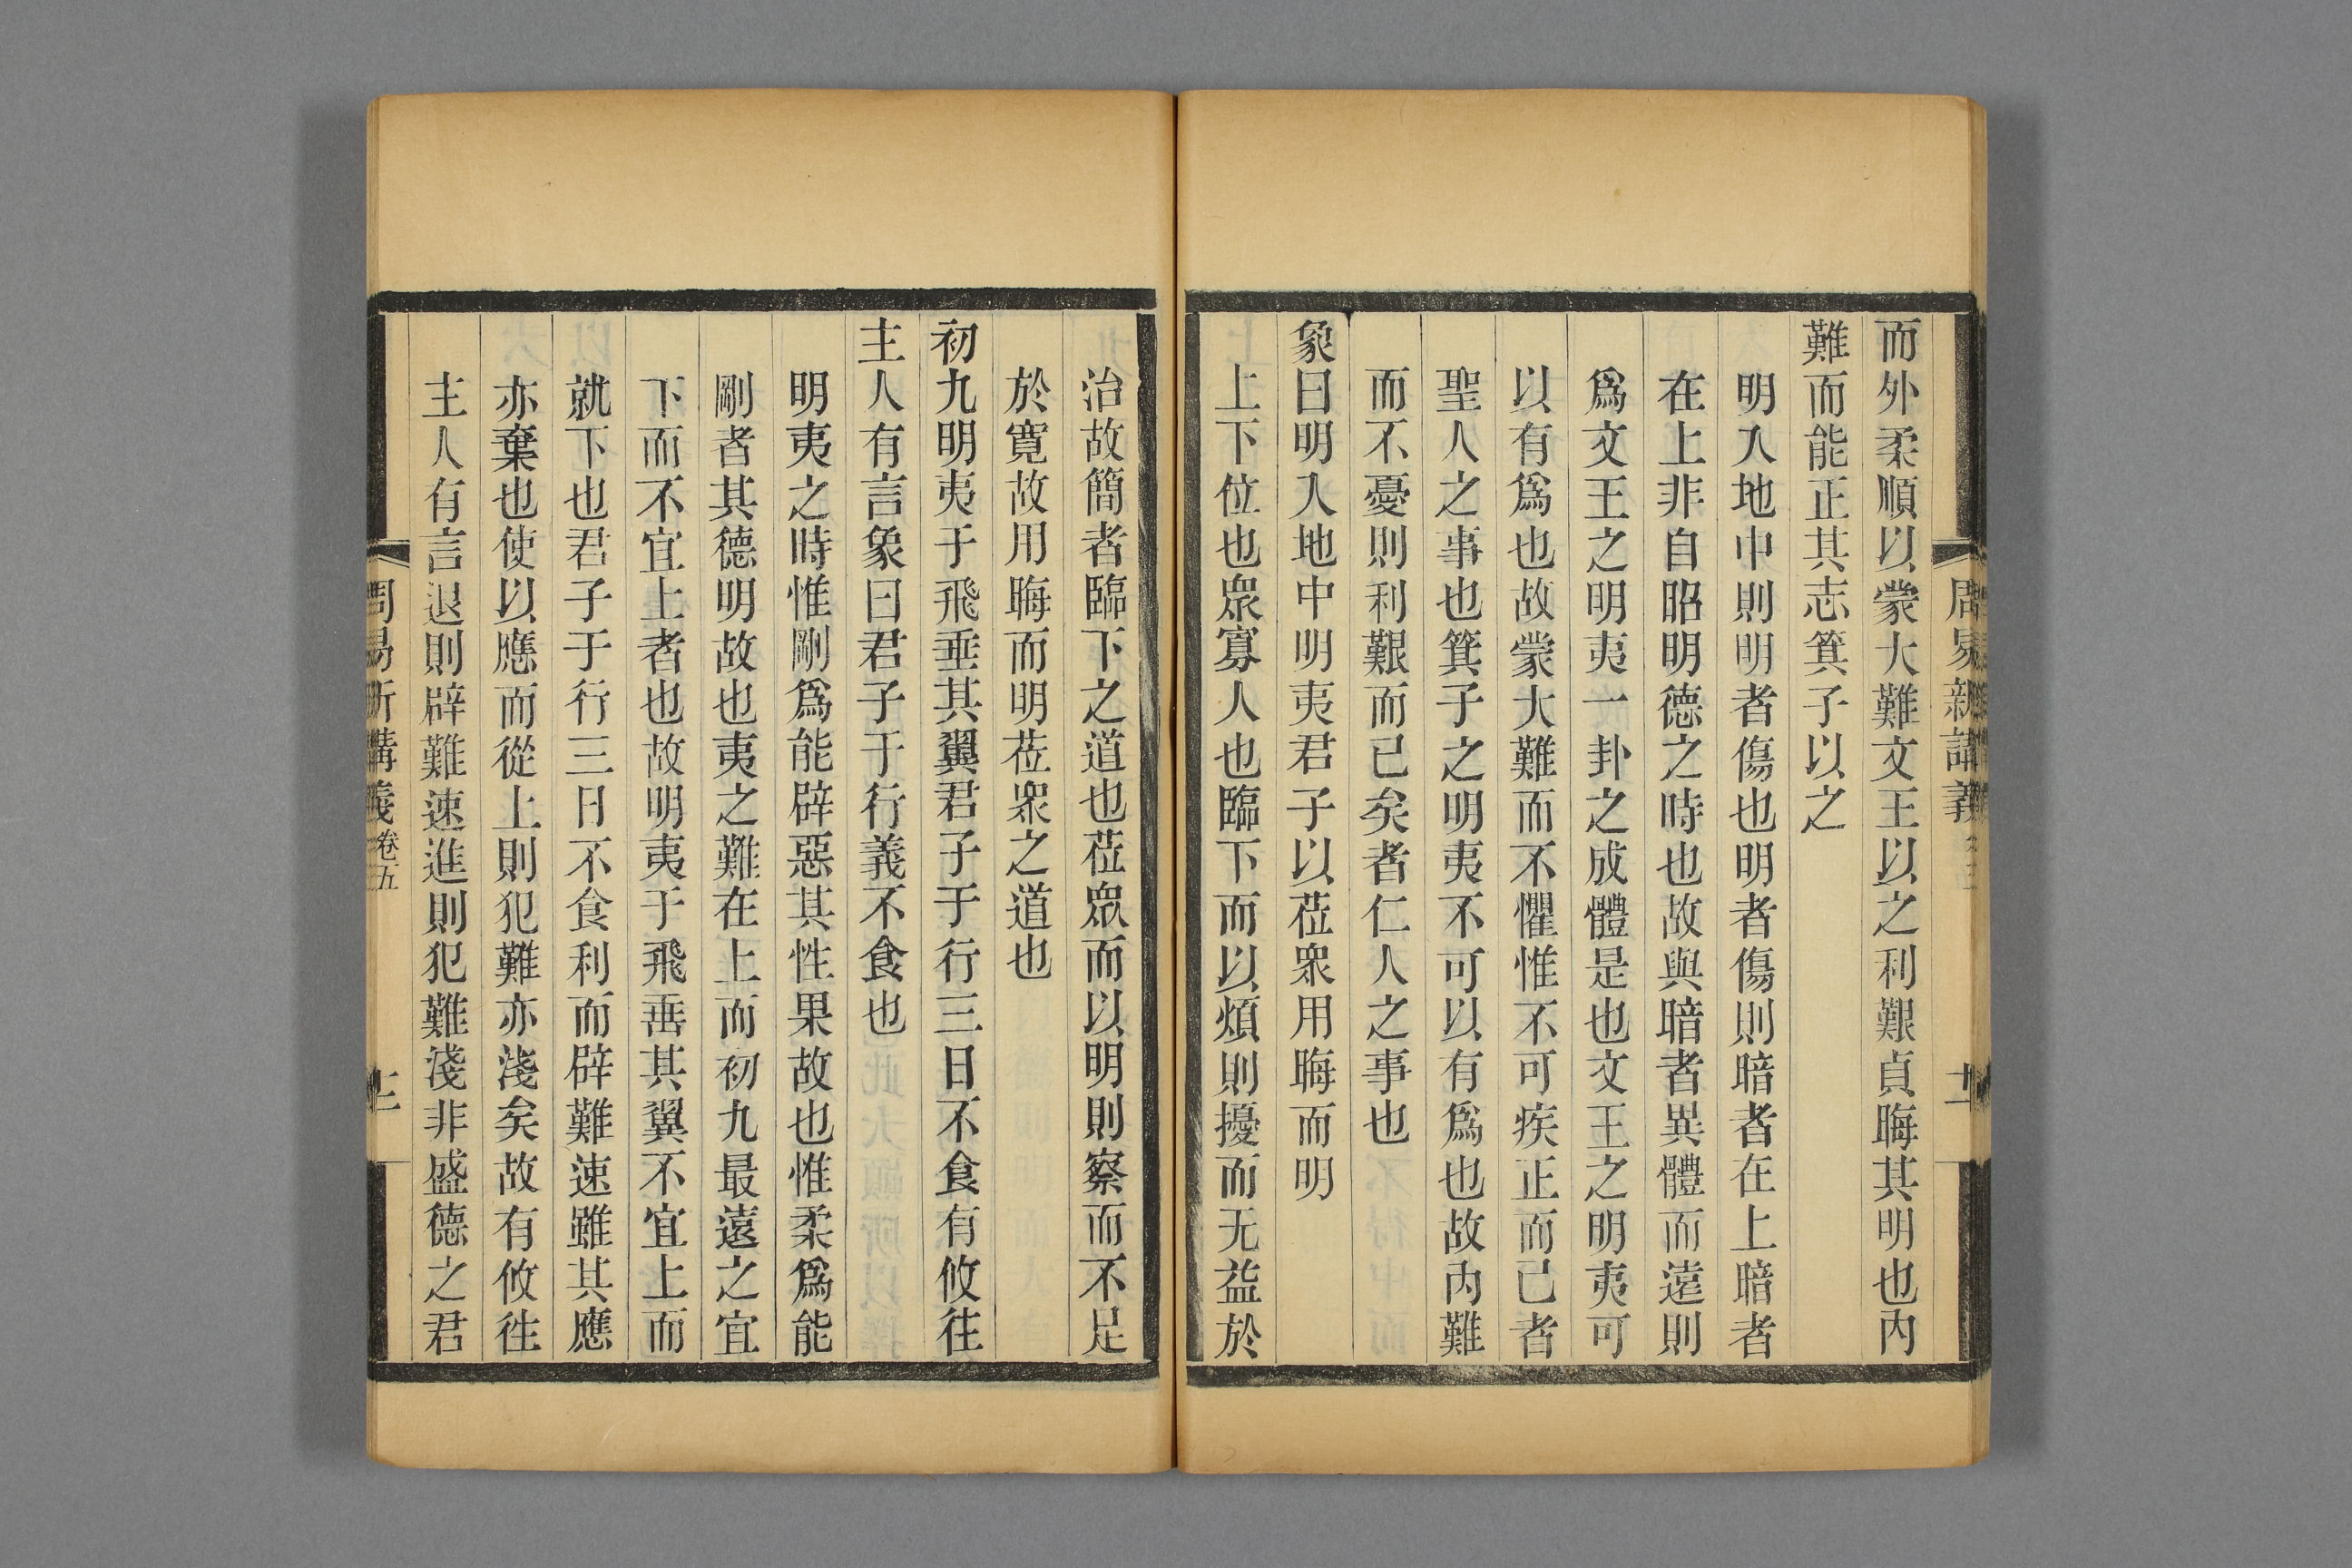 而外柔順以蒙大難文王以之利艱貞晦其明也內
難而能正其志箕子以之
明入地中則明者傷也明者傷則暗者在上暗者
在上非自昭明德之時也故與暗者異體而遠則
爲文王之明夷一卦之成體是也文王之明夷可
以有爲也故蒙大難而不懼惟不可疾正而已者
聖人之事也箕子之明夷不可以有爲也故內難
而不憂則利艱而已矣者仁人之事也
象曰明入地中明夷君子以莅衆用晦而明
上下位也眾寡人也臨下而以煩則擾而无益於
周易新講義
治故簡者臨下之道也莅眾而以明則察而不足
於寬故用晦而明莅衆之道也
初九明夷于飛垂其翼君子于行三日不食有攸往
主人有言象曰君子于行義不食也
明夷之時惟剛爲能辟惡其性果故也惟柔爲能
剛者其德明故也夷之難在上而初九最遠之宜
下而不宜上者也故明夷于飛垂其翼不宜上而
就下也君子于行三日不食利而辟難速雖其應
亦棄也使以應而從上則犯難亦淺矣故有攸往
主人有言退則辟難速進則犯難淺非盛德之君
周易新講義 卷五